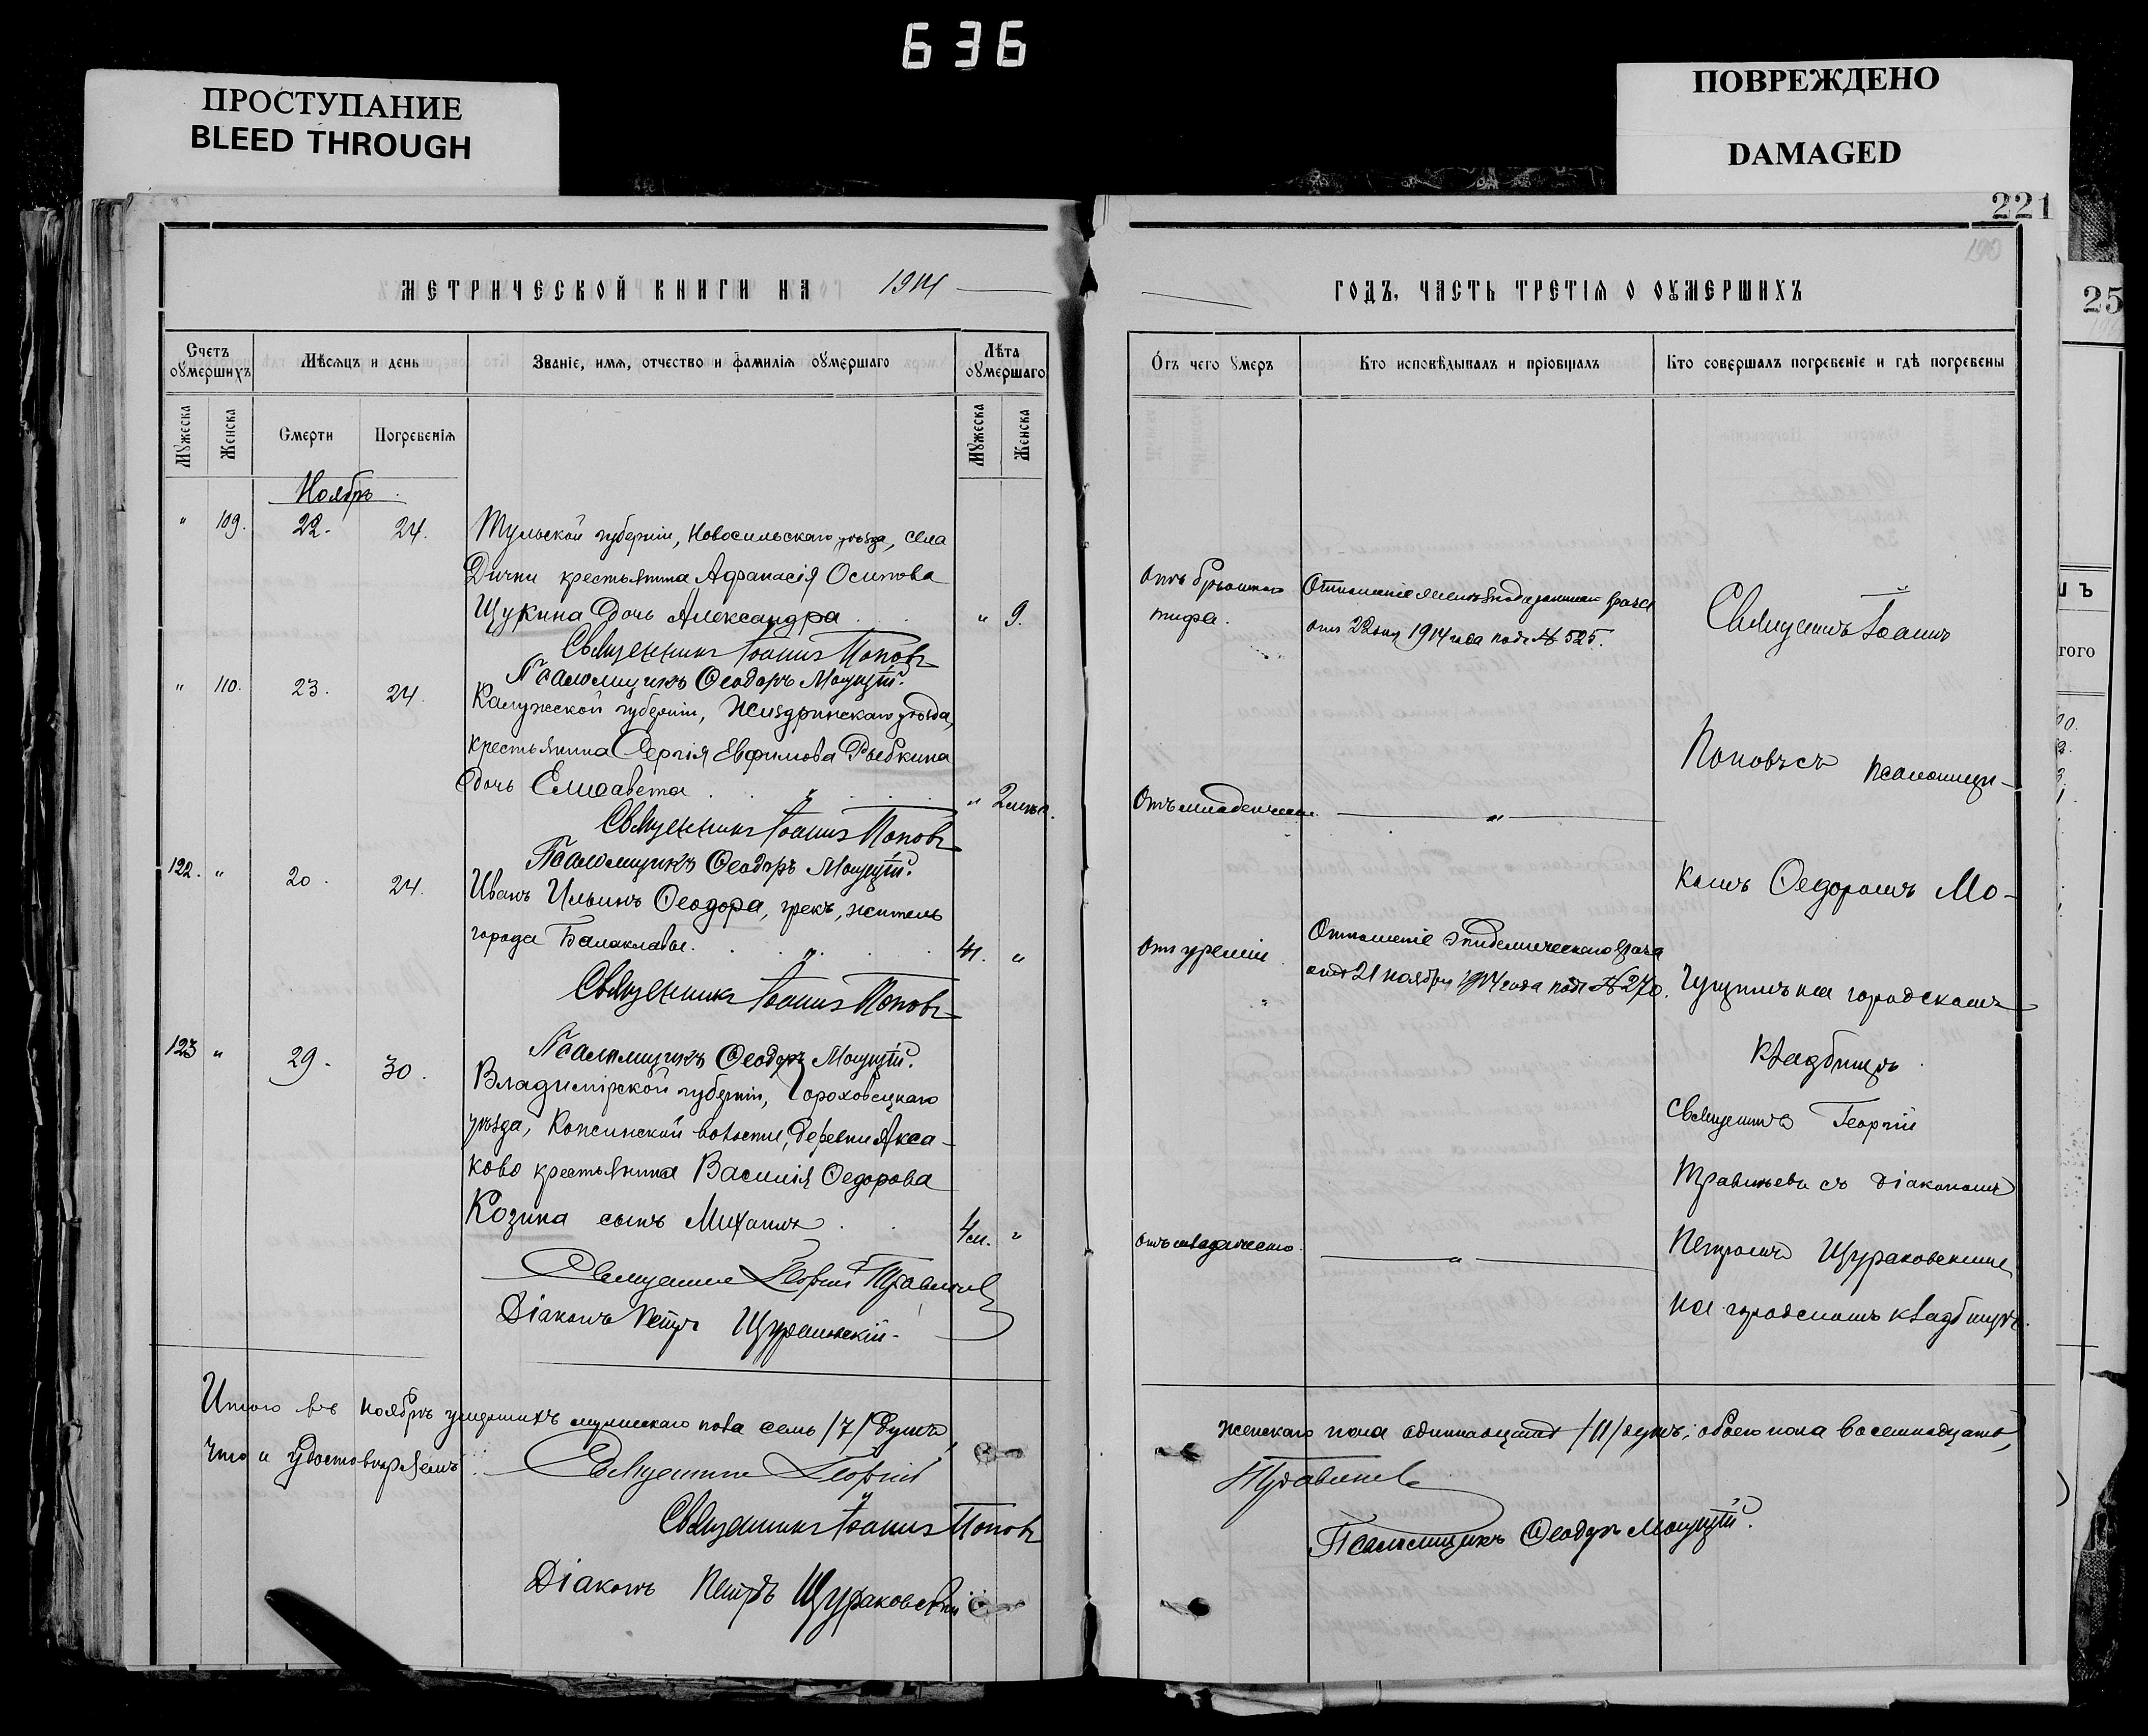 636
ПРОСТУПАНИЕ
BLEED THROUGH
ПОВРЕЖДЕНО
DAMAGED
221
190
25
МЕТРИЧЕСКОЙ КНИГИ НА 1914
ГОДЪ, ЧАСТЬ ТРЕТІЯ О ОУМЕРШИХЪ
Счетъ оумершихъ
Мѣсяцъ и день
Званіе, имя, отчество и фамилія оумершаго
Лѣта оумершаго
Мужеска
Женска
Смерти
Погребенія
Мужеска
Женска
Отъ чего умеръ
Кто исповѣдывалъ и пріобщалъ
Кто совершалъ погребеніе и гдѣ погребены
Ноябрь
" 109. 22. 24. Тульской губерніи, Новосильскаго уѣзда, села
Дички крестьянина Афанасія Осипова
Щукина дочь Александра " 9.
Священникъ Іоаннъ Поповъ
Псаломщикъ Ѳеодоръ Мощутій.
" 110. 23. 24. Калужской губерніи, Жиздринскаго уѣзда,
крестьянина Сергія Евфимова Рыбкина
дочь Елисавета "
Священникъ Іоаннъ Поповъ
Псаломщикъ Ѳеодоръ Мощутій.
122. " 20. 24. Иванъ Ильинъ Ѳеодора, грекъ, житель
города Балаклавы. 41. "
Священникъ Іоаннъ Поповъ
Псаломщикъ Ѳеодоръ Мощутій.
123 " 29. 30. Владимірской губерніи, Гороховецкаго
уѣзда, Кожинской волости, деревни Акса-
ково крестьянина Василія Ѳедорова
Козина сынъ Михаилъ 4 м. "
Священникъ Георгій Травиневъ
Діаконъ Петръ Щураковскій
Отъ брюшного
тифа.
врача
отъ 22 1914 года подъ № 525.
Отъ младенческой "
Отъ уреміи
Отношеніе эпидемическаго врача
отъ 21 ноября 1914 года подъ № 270.
"
Священникъ Іоаннъ
Поповъ съ псаломщи-
комъ Ѳедоромъ Мо-
на городскомъ
кладбищѣ.
Священникъ Георгій
Травиневъ съ діакономъ
Петромъ Щураковскимъ
на городскомъ кладбищѣ.
Итого въ Ноябрѣ умершихъ мужескаго пола семь /7/ душъ,
женскаго пола одиннадцать /11/ душъ; обоего пола восемнадцать,
что и удостовѣряемъ: Священникъ Георгій
Травиневъ
Священникъ Іоаннъ Поповъ
Псаломщикъ Ѳеодоръ Мощутій.
Діаконъ Петръ Щураковскій